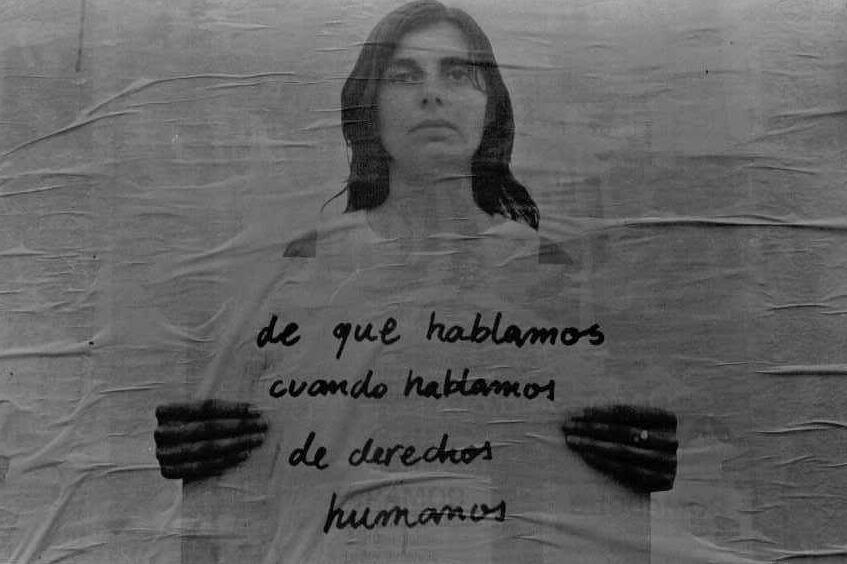 de que hablamos
cuando hablamos
de derechos
humanos